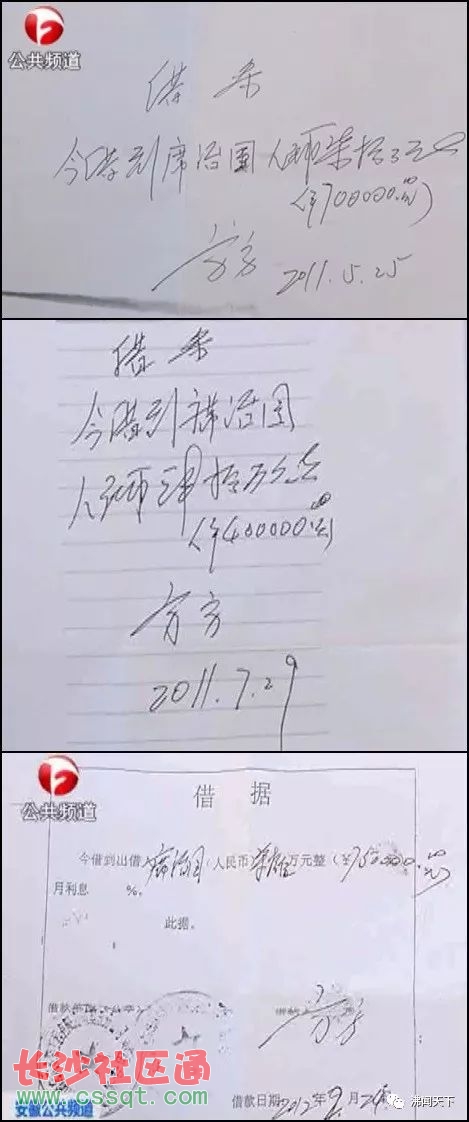 公共频道
借条
今借到席治国人民币柒拾万元
(¥700000.00元)
方方
2011.5.25
借条
今借到席治国
人民币肆拾万元
(¥400000.00元)
方方
2011.7.29
公共频道
借 据
今借到出借 席治国 人民币 万元整（¥750000.00元
月利息 %。
此据。
方方
借款日期2012年9月24
长沙社区通
www.cssqt.com
安徽公共频道
沸闻天下